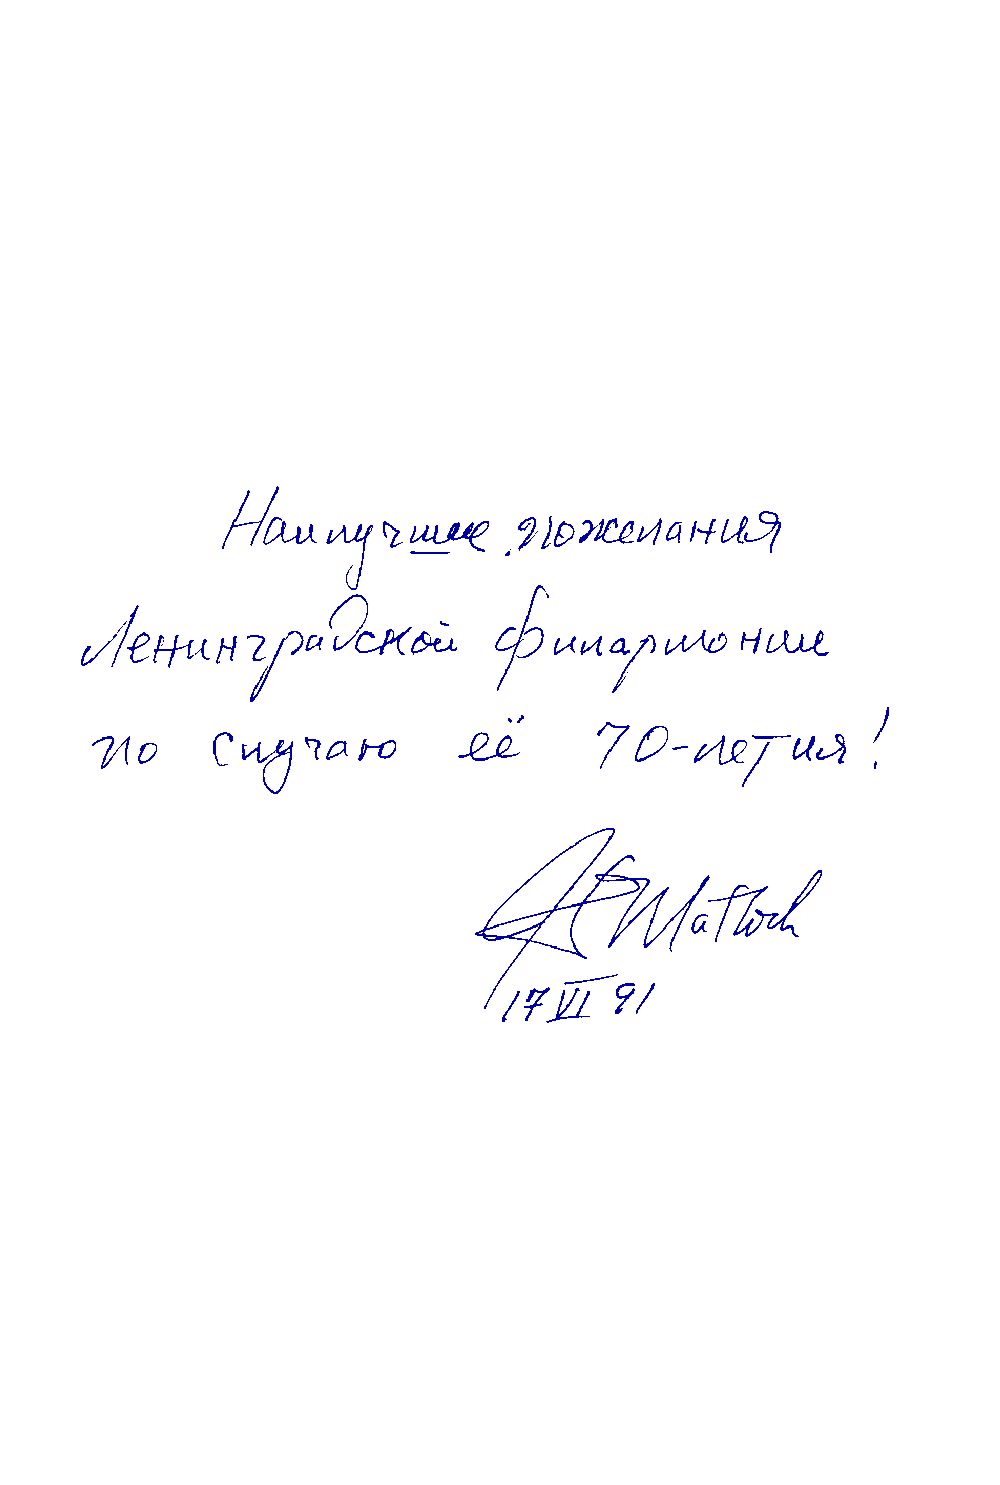 Наилучшие пожелания
Ленинградской филармонии
по случаю её 70-летия!
JF Matlock
17 VI 91